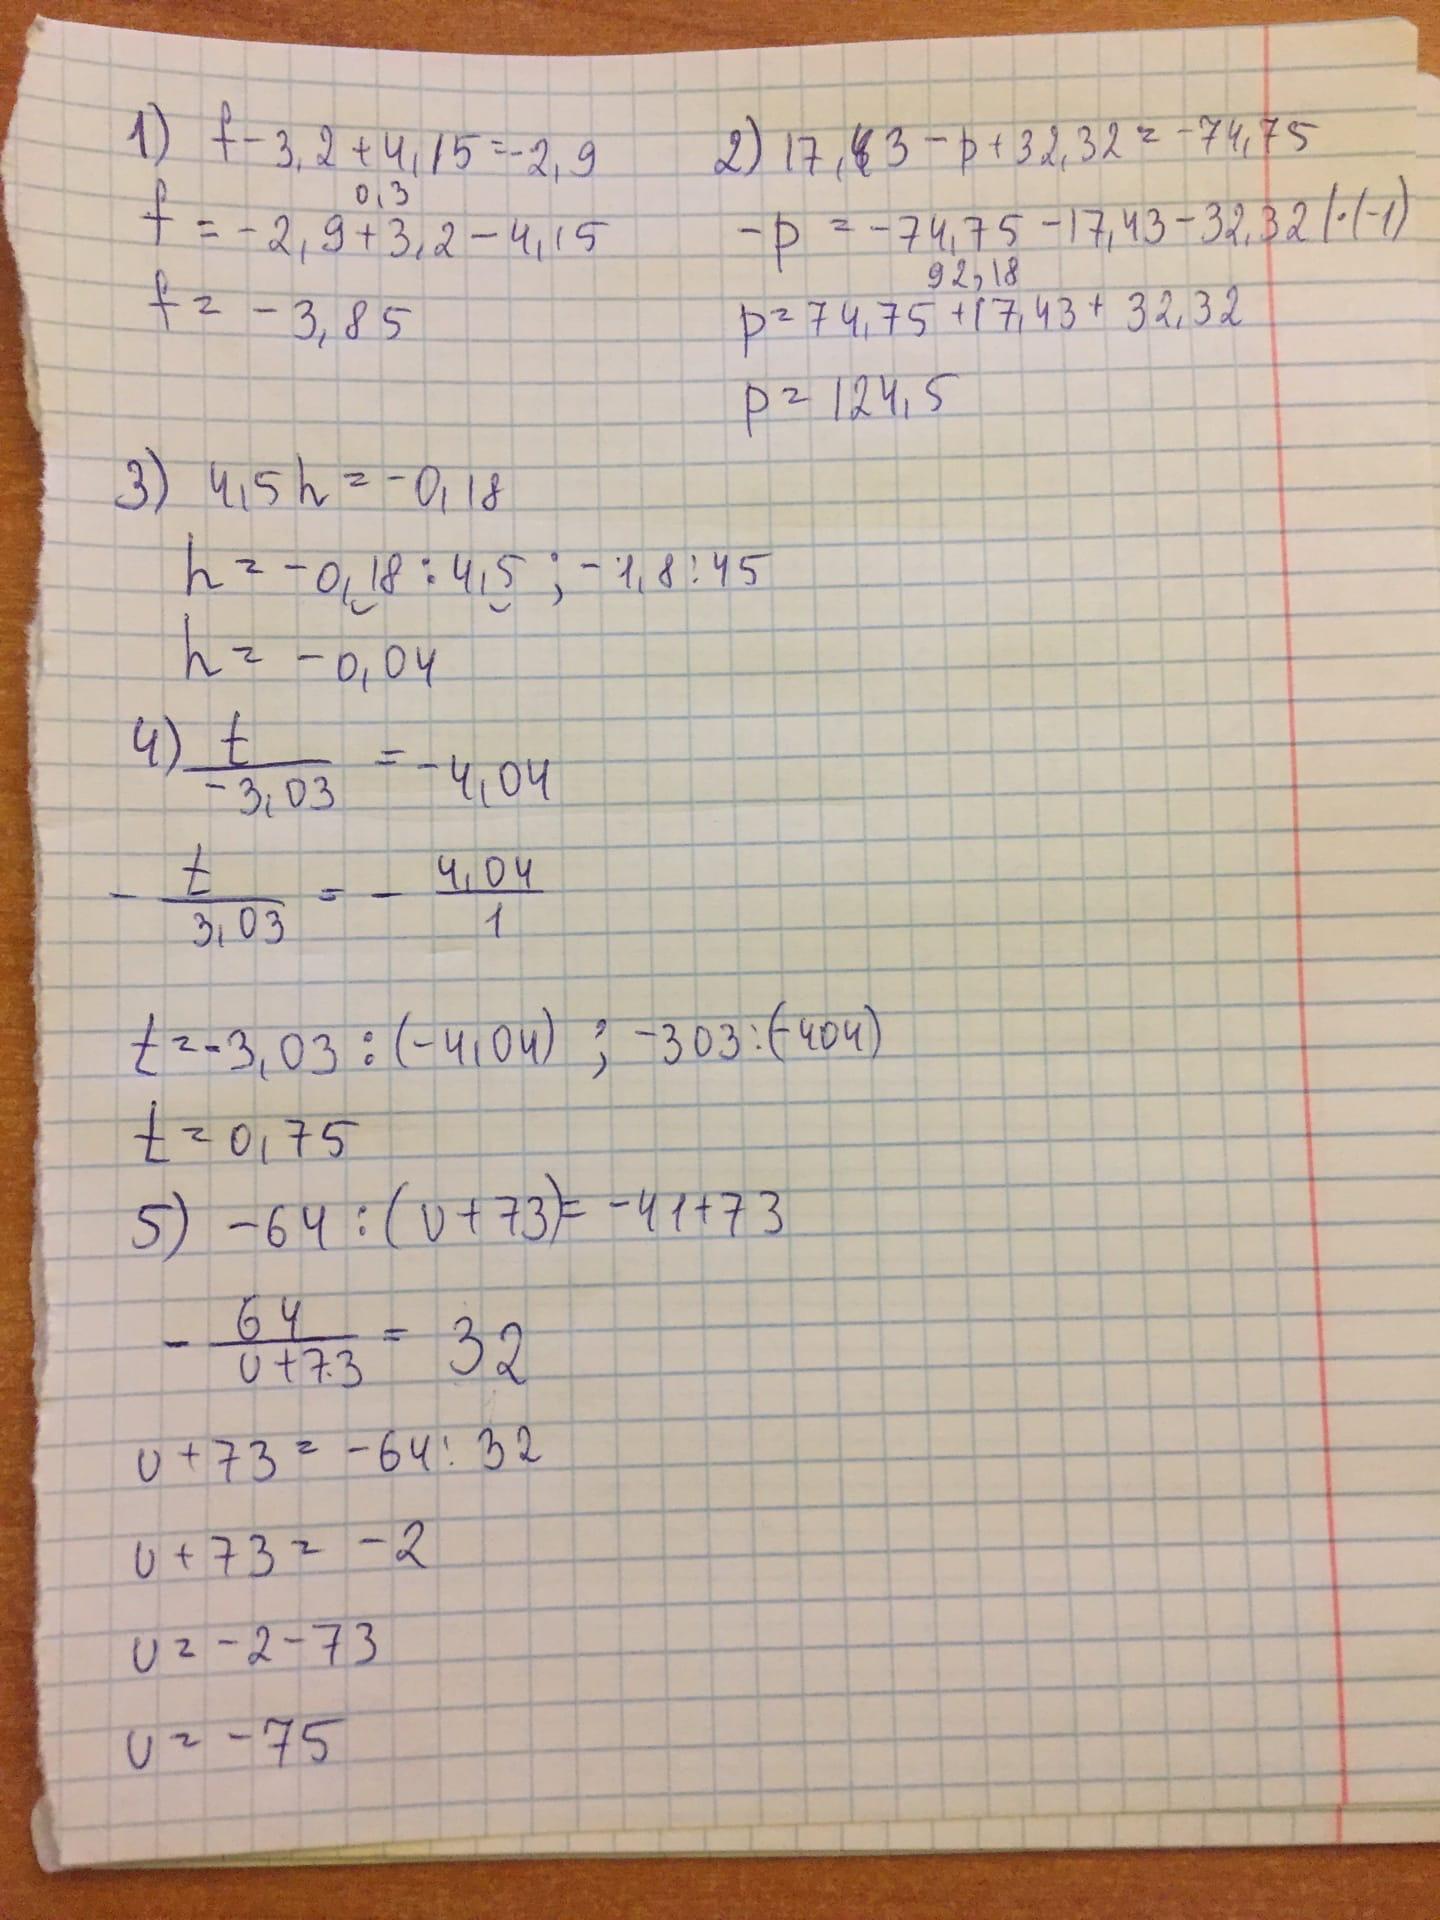 1) f-3,2+4,15=-2,9
0,3
f=-2,9+3,2-4,15
f=-3,85
2) 17,43-p+32,32=-74,75
-p=-74,75-17,43-32,32/·(-1)
92,18
p=74,75+17,43+32,32
p=124,5
3) 4,5h=-0,18
h=-0,18:4,5;-1,8:45
h=-0,04
4) t/-3,03=-4,04
-t/3,03=-4,04/1
t=-3,03:(-4,04);-303:(-404)
t=0,75
5) -64:(v+73)=-41+73
-64/v+73=32
v+73=-64:32
v+73=-2
v=-2-73
v=-75